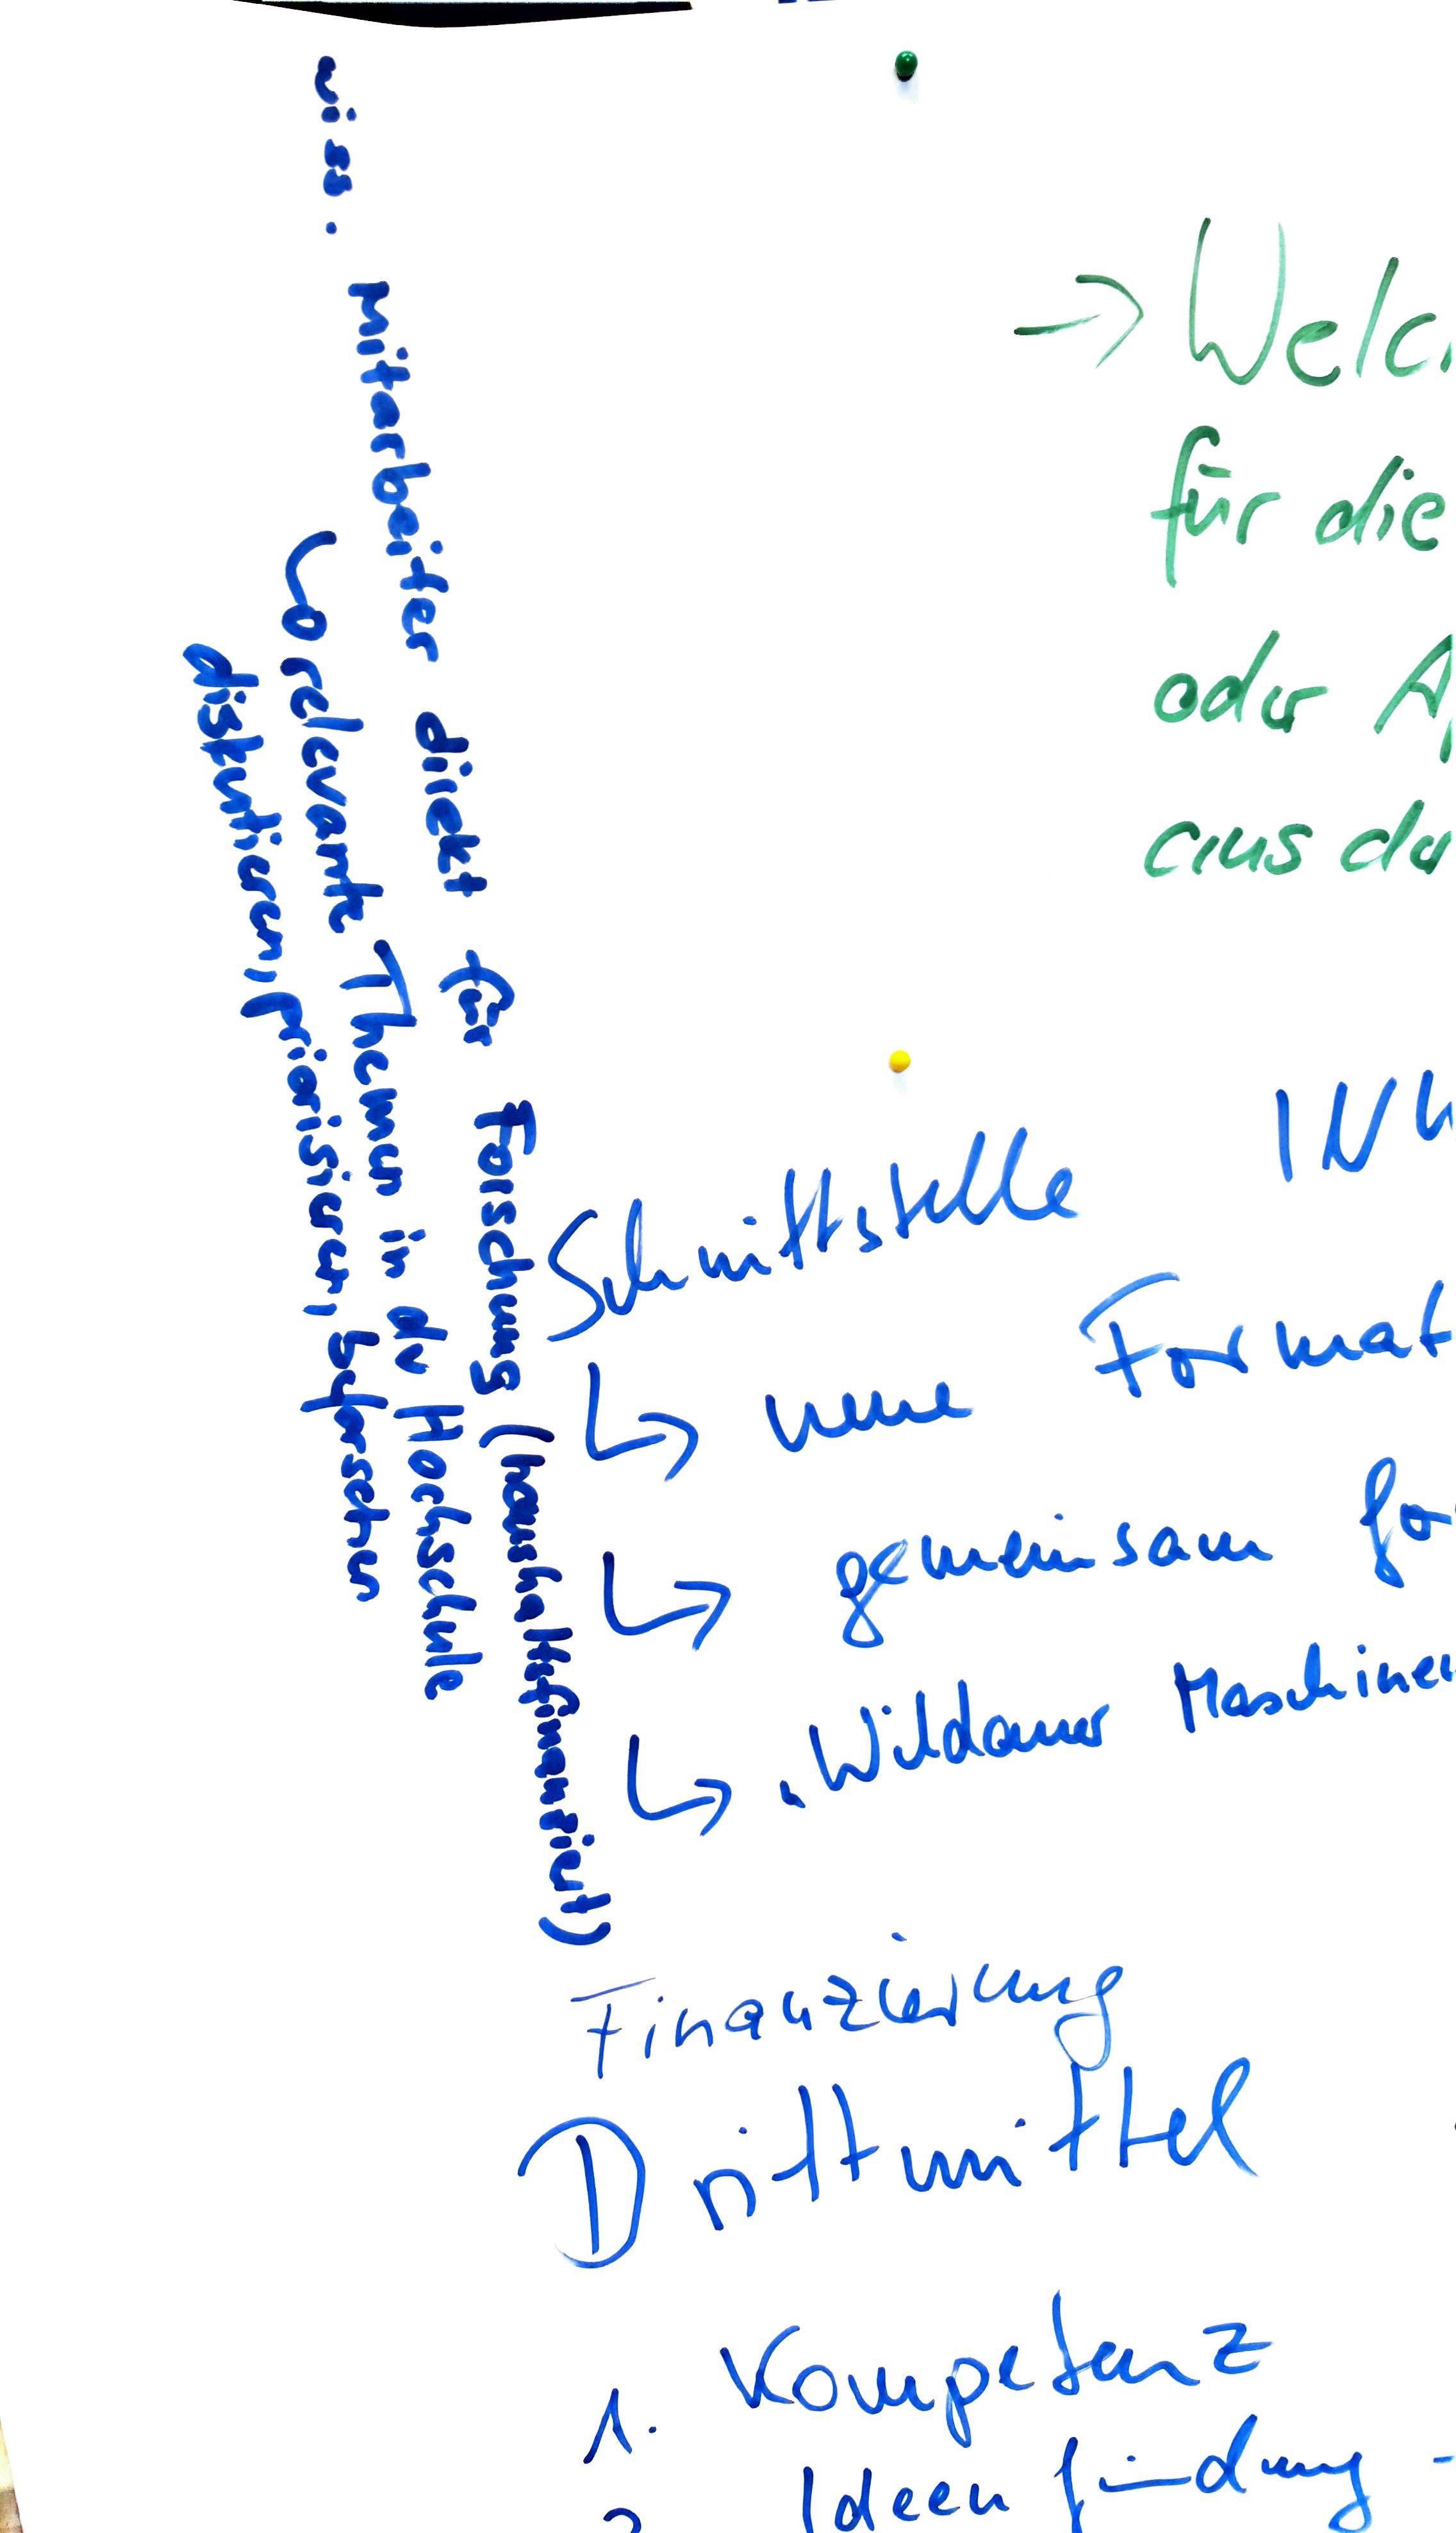 → Welc
für die
oder A
aus da
wiss. Mitarbeiter direkt für Forschung (haushaltsfinanziert)
↳ relevante Themen in der Hochschule
diskutieren, priorisieren, beforschen
Schnittstelle
↳ neue Format
↳ gemeinsam fo
↳ "Wildauer Maschinen
Finanzierung
Drittmittel
1. Kompetenz
2. Ideenfindung -